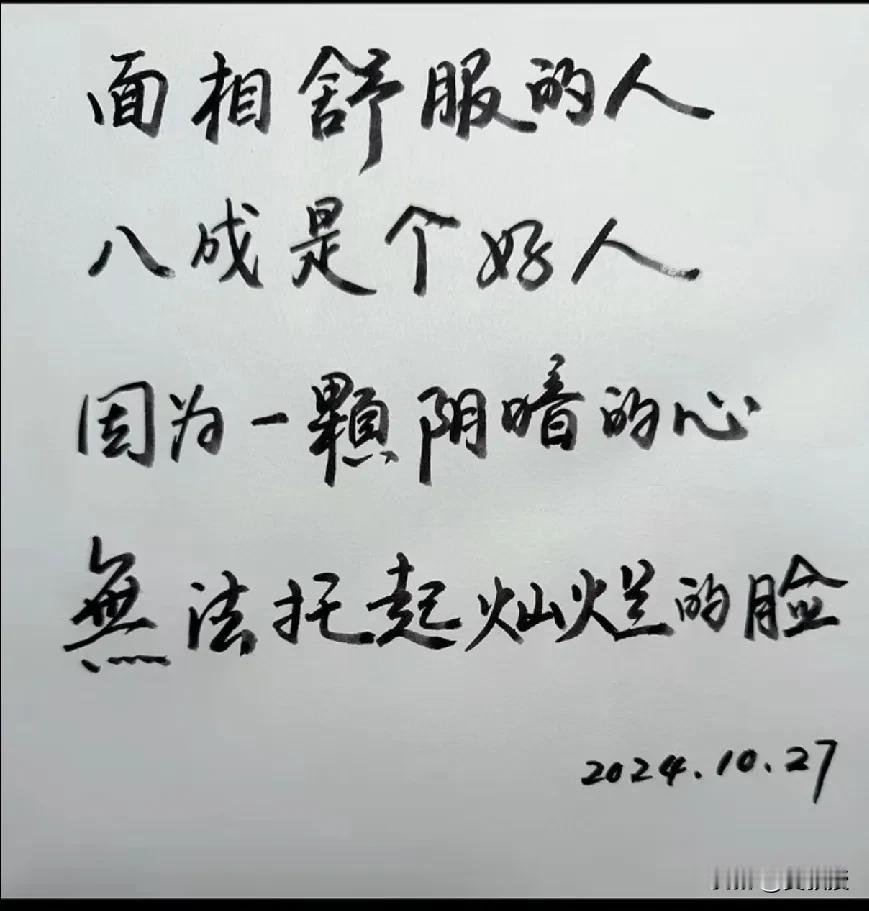 面相舒服的人
八成是个好人
因为一顆阴暗的心
無法托起灿烂的脸
2024.10.27